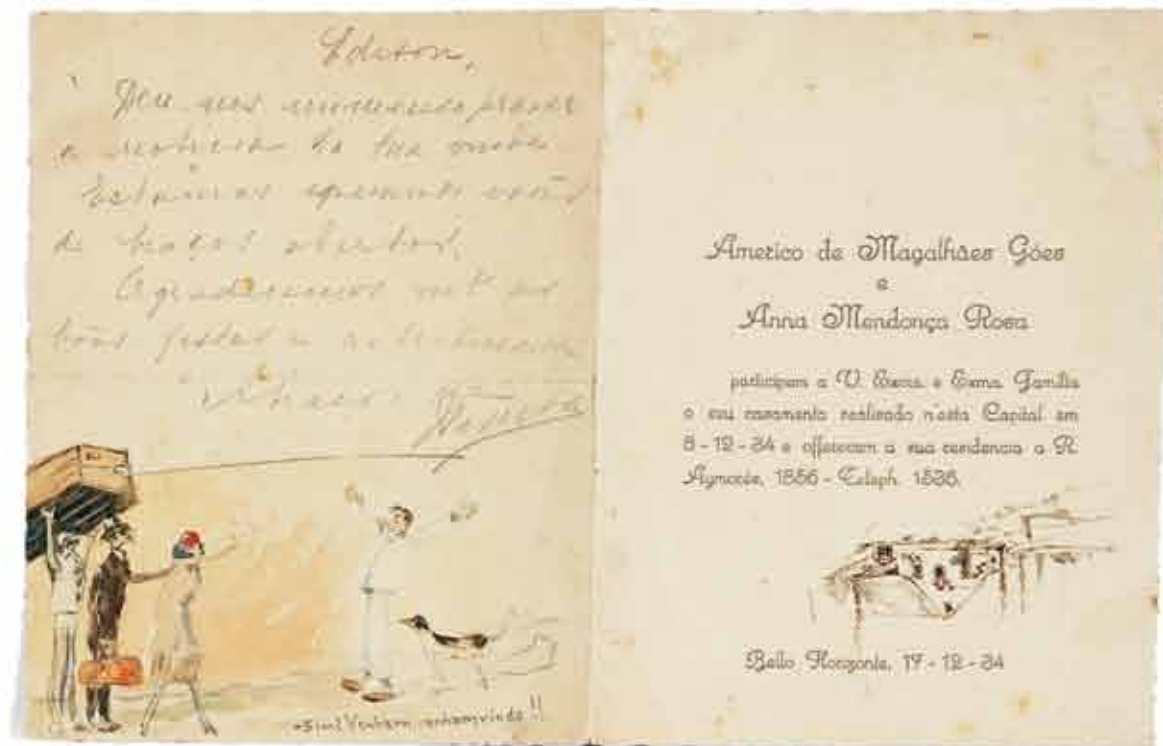 Edison,
Deu nos immenso prazer
a noticia da tua vinda
Estamos esperando vocês
de braços abertos.
Agradecemos mtº as
bôas festas e a lembrança
Americo de Magalhães Góes
e
Anna Mendonça Rosa
participam a V. Excia. e Exma. Familia
o seu casamento realizado n'esta Capital em
8 - 12 - 34 e offerecem a sua residencia a R.
Aymorés, 1856 - Teleph. 1536.
Bello Horizonte, 17 - 12 - 34